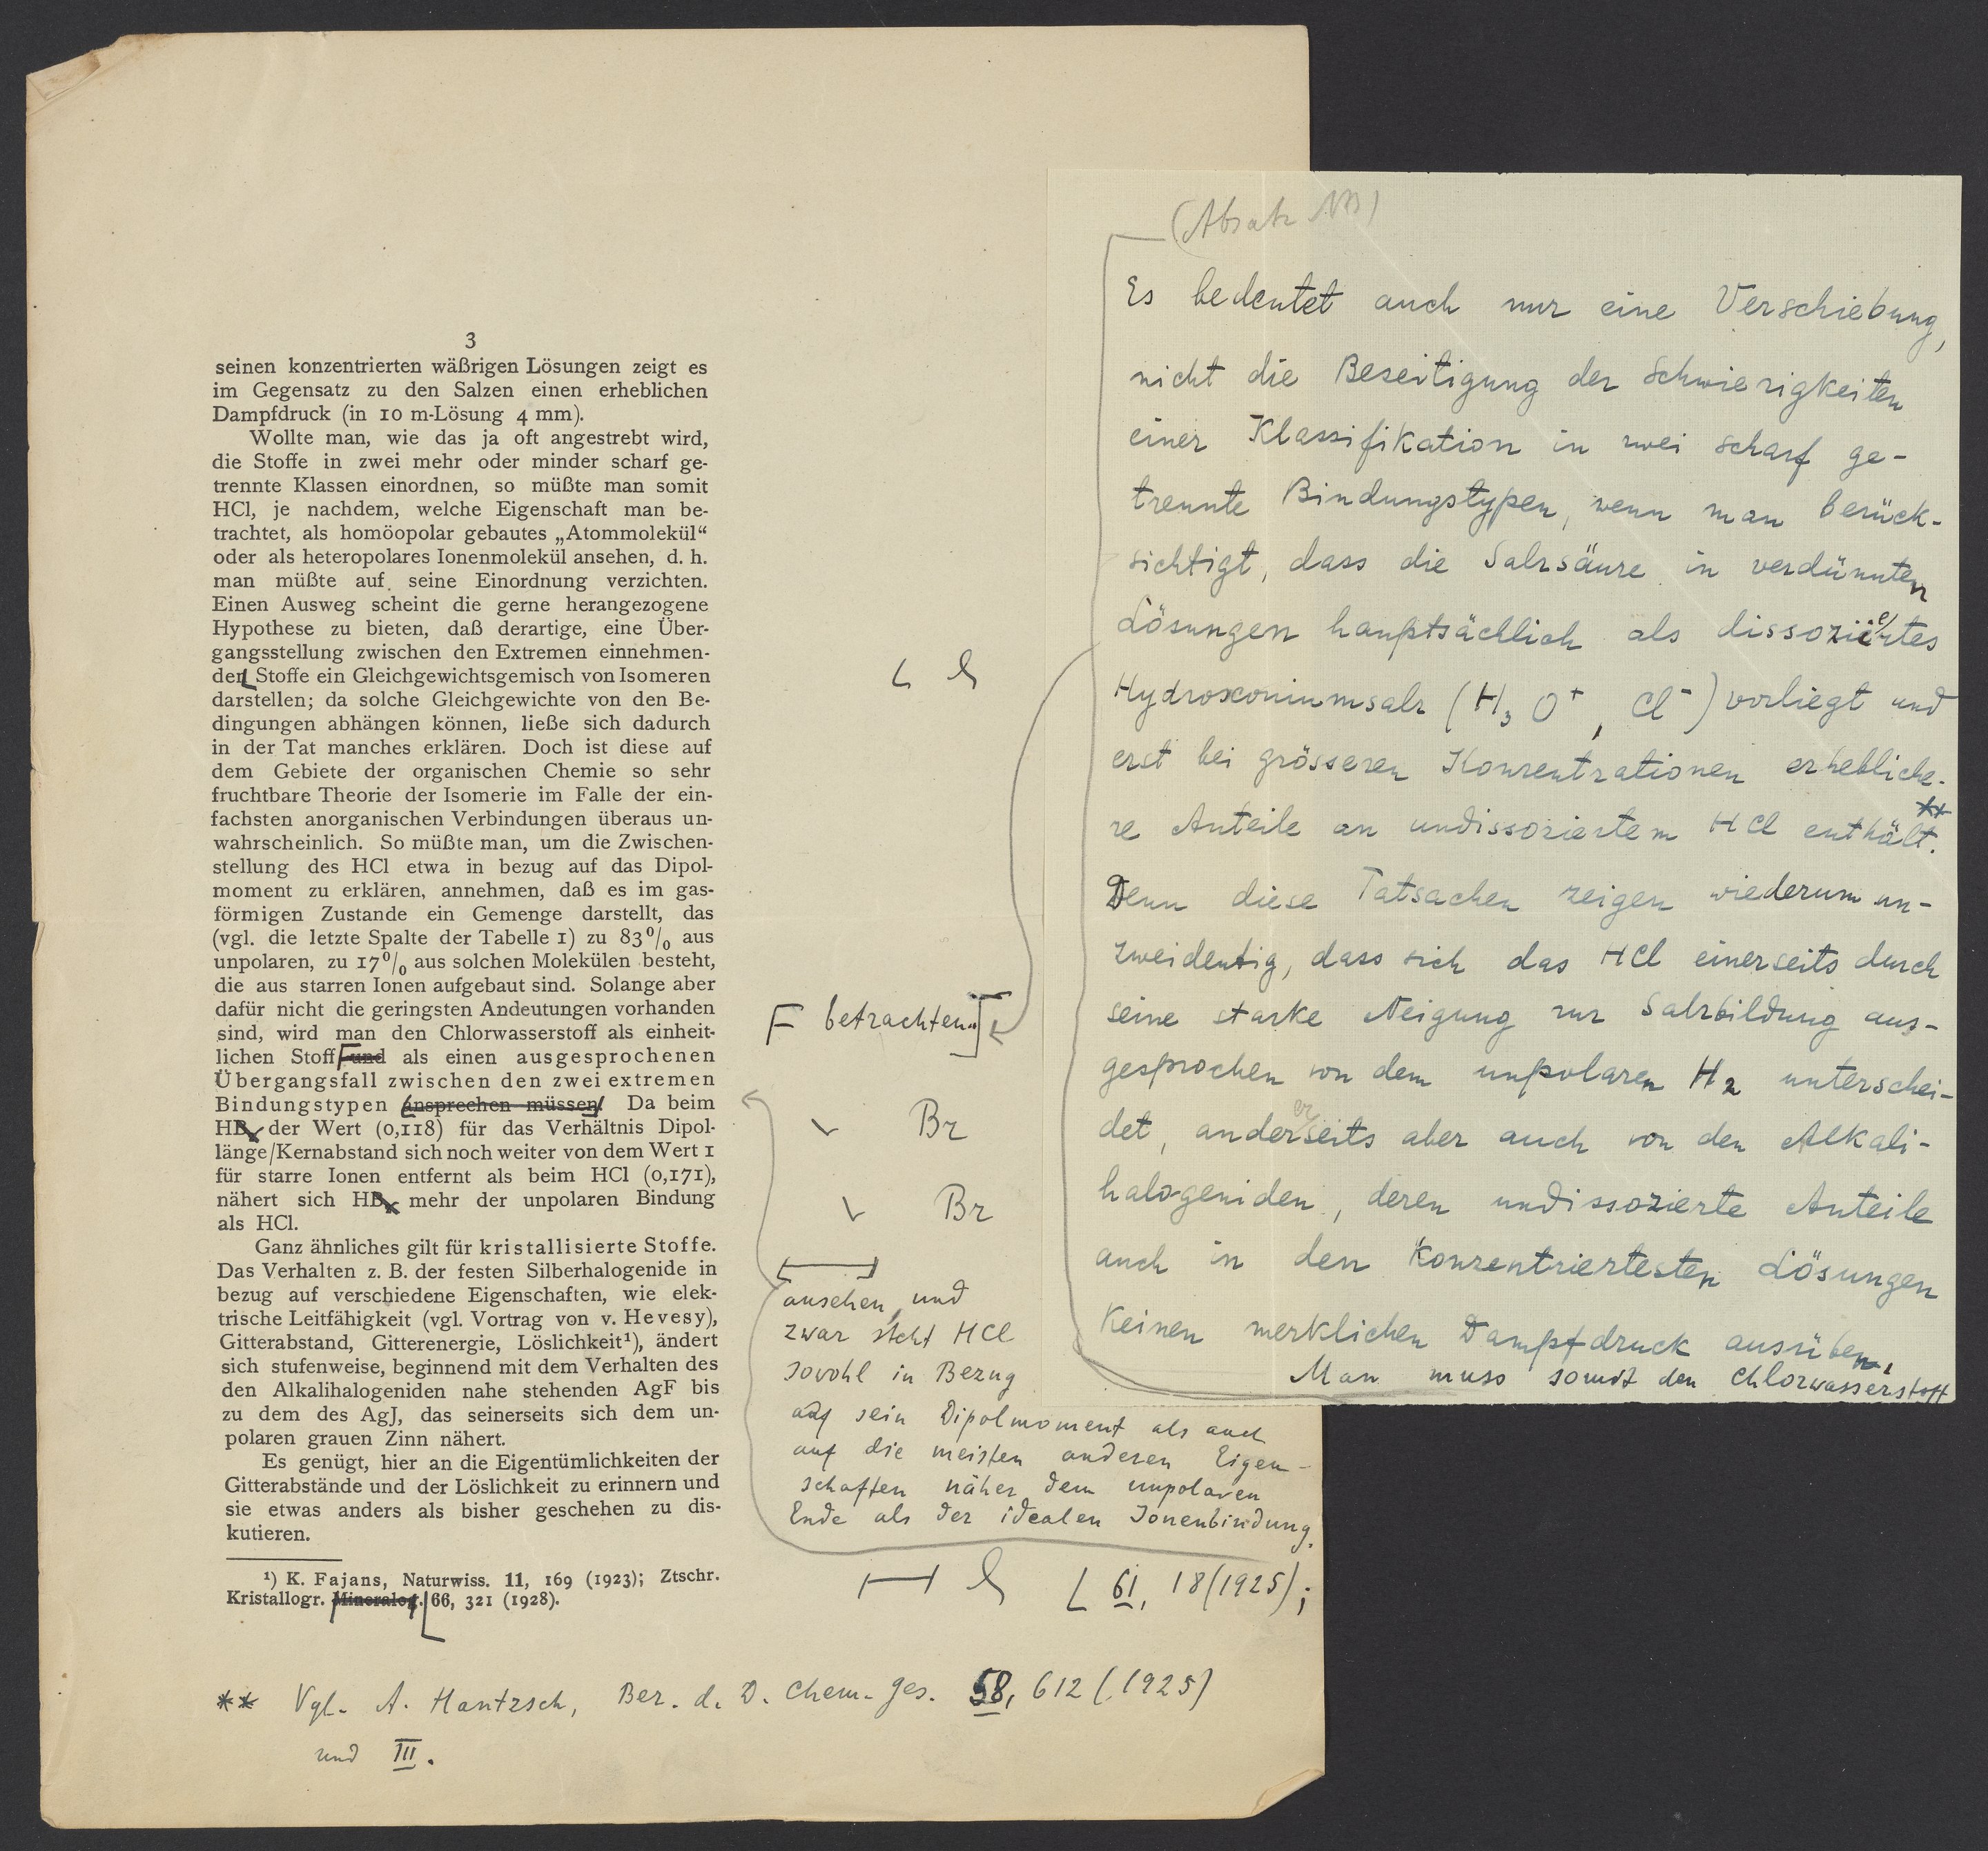 3
seinen konzentrierten wäßrigen Lösungen zeigt es
im Gegensatz zu den Salzen einen erheblichen
Dampfdruck (in 10 m-Lösung 4 mm).
Wollte man, wie das ja oft angestrebt wird,
die Stoffe in zwei mehr oder minder scharf ge-
trennte Klassen einordnen, so müßte man somit
HCl, je nachdem, welche Eigenschaft man be-
trachtet, als homöopolar gebautes „Atommolekül“
oder als heteropolares Ionenmolekül ansehen, d. h.
man müßte auf seine Einordnung verzichten.
Einen Ausweg scheint die gerne herangezogene
Hypothese zu bieten, daß derartige, eine Über-
gangsstellung zwischen den Extremen einnehmen-
den Stoffe ein Gleichgewichtsgemisch von Isomeren
darstellen; da solche Gleichgewichte von den Be-
dingungen abhängen können, ließe sich dadurch
in der Tat manches erklären. Doch ist diese auf
dem Gebiete der organischen Chemie so sehr
fruchtbare Theorie der Isomerie im Falle der ein-
fachsten anorganischen Verbindungen überaus un-
wahrscheinlich. So müßte man, um die Zwischen-
stellung des HCl etwa in bezug auf das Dipol-
moment zu erklären, annehmen, daß es im gas-
förmigen Zustande ein Gemenge darstellt, das
(vgl. die letzte Spalte der Tabelle 1) zu 83% aus
unpolaren, zu 17% aus solchen Molekülen besteht,
die aus starren Ionen aufgebaut sind. Solange aber
dafür nicht die geringsten Andeutungen vorhanden
sind, wird man den Chlorwasserstoff als einheit-
lichen Stoff und als einen ausgesprochenen
Übergangsfall zwischen den zwei extremen
Bindungstypen ansprechen müssen. Da beim
HB der Wert (0,118) für das Verhältnis Dipol-
länge/Kernabstand sich noch weiter von dem Wert 1
für starre Ionen entfernt als beim HCl (0,171),
nähert sich HB mehr der unpolaren Bindung
als HCl.
Ganz ähnliches gilt für kristallisierte Stoffe.
Das Verhalten z. B. der festen Silberhalogenide in
bezug auf verschiedene Eigenschaften, wie elek-
trische Leitfähigkeit (vgl. Vortrag von v. Hevesy),
Gitterabstand, Gitterenergie, Löslichkeit¹), ändert
sich stufenweise, beginnend mit dem Verhalten des
den Alkalihalogeniden nahe stehenden AgF bis
zu dem des AgJ, das seinerseits sich dem un-
polaren grauen Zinn nähert.
Es genügt, hier an die Eigentümlichkeiten der
Gitterabstände und der Löslichkeit zu erinnern und
sie etwas anders als bisher geschehen zu dis-
kutieren.
¹) K. Fajans, Naturwiss. 11, 169 (1923); Ztschr.
Kristallogr. Mineralog. 66, 321 (1928).
betrachten.
Br
Br
ansehen, und
zwar steht HCl
sowohl in Bezug
auf sein Dipolmoment als auch
auf die meisten anderen Eigen-
schaften näher dem unpolaren
Ende als der idealen Ionenbindung.
61, 18 (1925);
** Vgl. A. Hantzsch, Ber. d. D. Chem. Ges. 58, 612 (1925)
und III.
(Absatz
Es bedeutet auch nur eine Verschiebung,
nicht die Beseitigung der Schwierigkeiten
einer Klassifikation in zwei scharf ge-
trennte Bindungstypen, wenn man berück-
sichtigt, dass die Salzsäure in verdünnten
Lösungen hauptsächlich als dissoziiertes
Hydroxoniumsalz (H₃O⁺, Cl⁻) vorliegt und
erst bei grösseren Konzentrationen erhebliche-
re Anteile an undissoziertem HCl enthält.**
Denn diese Tatsachen zeigen wiederum un-
zweideutig, dass sich das HCl einerseits durch
seine starke Neigung zur Salzbildung aus-
gesprochen von dem unpolaren H₂ unterschei-
det, andererseits aber auch von den Alkali-
halogeniden, deren undissozierte Anteile
auch in den konzentriertesten Lösungen
keinen merklichen Dampfdruck ausüben.
Man muss somit den Chlorwasserstoff